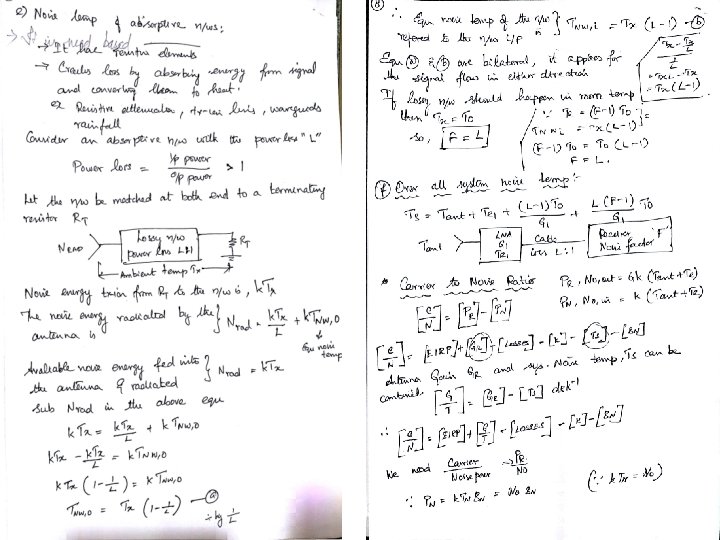 e) Noise temp of absorptive n/ws:
→ It has resistive elements
→ Creates loss by absorbing energy from signal
and converting them to heat.
ex Resistive attenuator, lines, waveguides
rainfall
Consider an absorptive n/w with the power loss "L"
Power loss = i/p power / o/p power > 1
Let the n/w be matched at both end to a terminating
resistor RT
NRAD
Lossy n/w
power loss L:1
RT
Ambient temp Tx
Noise energy from RT to the n/w is, kTx
The noise energy radiated by the
antenna is } Nrad = kTx/L + kTNW,0
Equ noise
temp
Available noise energy fed into
the antenna & radiated } Nrad = kTx
sub Nrad in the above equ
kTx = kTx/L + kTNW,0
kTx - kTx/L = kTNW,0
kTx (1 - 1/L) = kTNW,0
TNW,0 = Tx (1 - 1/L) — (a)
÷ by 1/L
∴ Equ noise temp of the n/w
referred to the n/w i/p is } TNW,i = Tx (L-1) — (b)
Equ (a) & (b) are bilateral, it applies for
the signal flow in either direction
Tx - Tx/L
= Tx (L-1)
If lossy n/w should happen in room temp
then Tx = T0
so, F = L
∵ = (F-1) T0
TNW,i = Tx(L-1)
(F-1) T0 = T0 (L-1)
F = L.
(f) Over all system noise temp:-
TS = Tant + Te1 + (L-1)T0/G1 + L(F-1)/G1 T0
Tant
LNA
G1
Te1
Cable
loss L:1
Receiver
Noise factor F
* Carrier to Noise Ratio
PR, No,out = Gk (Tant + Te)
PN, No,in = k (Tant + Te)
[C/N] = [PR] - [PN]
[C/N] = [EIRP] + [GR] - [LOSSES] - [k] - [TS] - [BN]
Antenna Gain GR and sys. Noise temp, TS can be
combined. [G/T] = [GR] - [TS] dBK-1
∴ [C/N] = [EIRP] + [G/T] - [LOSSES] - [k] - [BN]
We need Carrier / Noise power → PR / N0
∴ PN = kTN BN = N0 BN
(∵ kTN = N0)